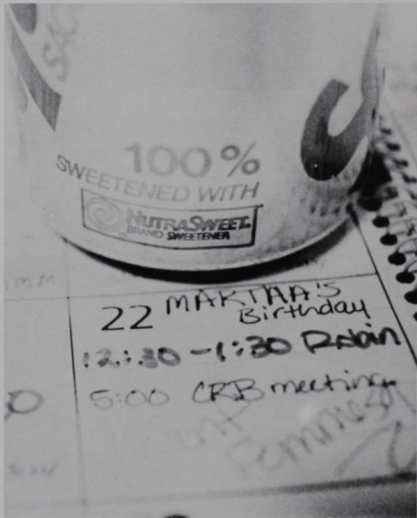 100%
SWEETENED WITH
NUTRASWEET
BRAND SWEETENER
22 MARTHA'S
Birthday
12:30-1:30 Robin
5:00 CRB meeting